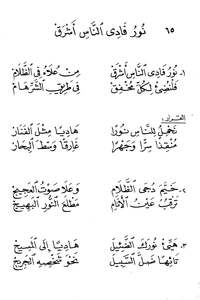 ٦٥ نُورُ فَادِي النَّاسِ أَشْرَقْ
١. نُورُ فَادِي النَّاسِ أَشْرَقْ مِنْ عُلَاهُ فِي الظَّلَامْ
فَلْنُضِئْ لِكُلِّ مُخْفِقْ فِي طَرِيقِ
القرار:
نَحْمِلُ لِلنَّاسِ نُورًا هَادِيًا مِثْلَ الْفَنَارْ
مُنْقِذًا سِرًّا وَجَهْرًا غَارِقًا وَسْطَ الْبِحَارْ
٢. خَيَّمَ دُجَى الظَّلَامْ وَعَلَا صَوْتُ الْعَجِيجْ
تَرْقُبُ عَيْنُ الْأَنَامْ مَطْلَعَ النُّورِ الْبَهِيجْ
٣. هَيِّئْ نُورَكَ الضَّئِيلْ هَادِيًا إِلَى الْمَسِيحْ
تَائِهًا ضَلَّ السَّبِيلْ نَحْوَ شَخْصِهِ الْجَرِيحْ